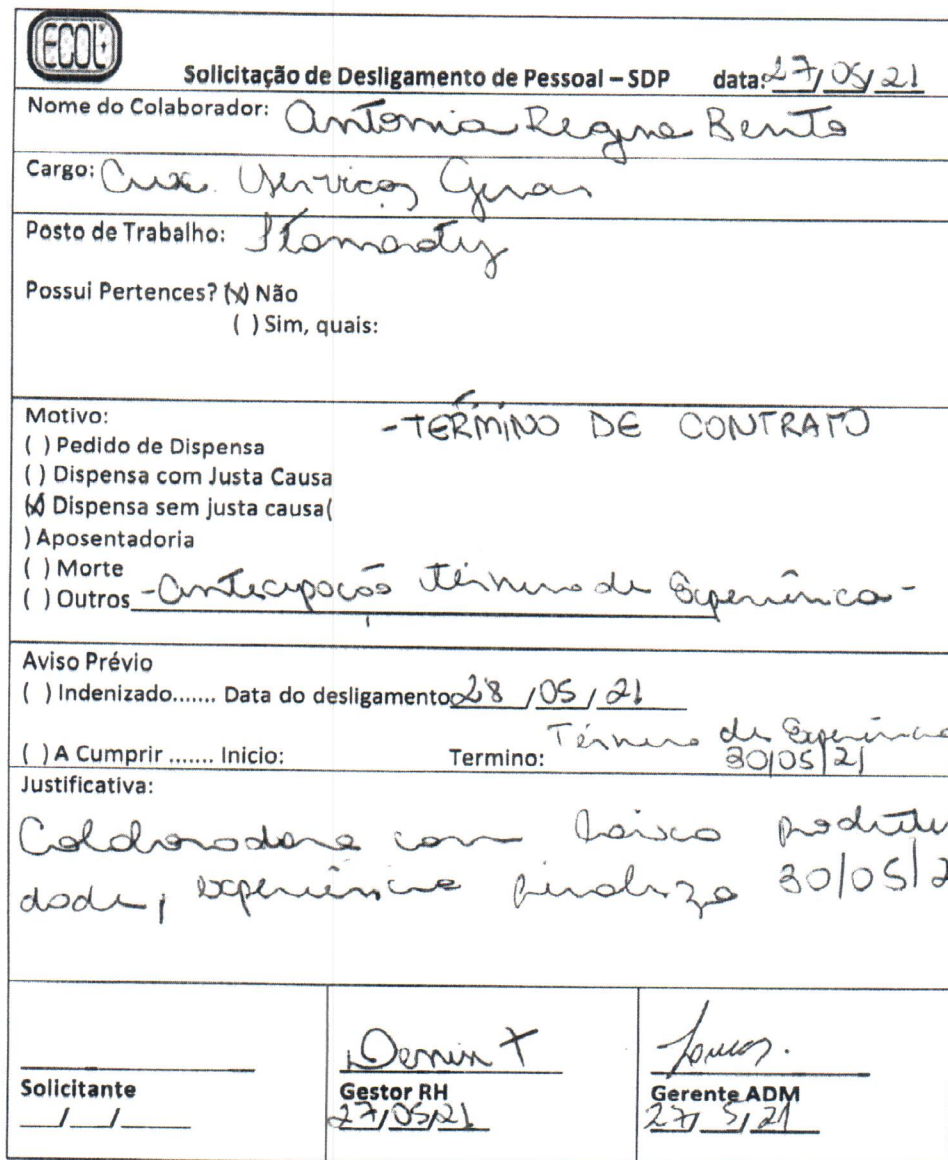 ECOL
Solicitação de Desligamento de Pessoal – SDP data: 27/05/21
Nome do Colaborador: Antonia Regina Bento
Cargo: Aux. Serviços Gerais
Posto de Trabalho:
Possui Pertences? (x) Não
( ) Sim, quais:
Motivo: -TÉRMINO DE CONTRATO
( ) Pedido de Dispensa
( ) Dispensa com Justa Causa
(x) Dispensa sem justa causa(
) Aposentadoria
( ) Morte
( ) Outros -Antecipação término de Experiência-
Aviso Prévio
( ) Indenizado....... Data do desligamento 28/05/21
Término de Experiência
( ) A Cumprir ....... Inicio: Termino: 30/05/21
Justificativa:
Colaboradora com baixa produtivi
dade, experiência finaliza 30/05/2
Solicitante
__/__/__
Gestor RH
27/05/21
Gerente ADM
27/5/21